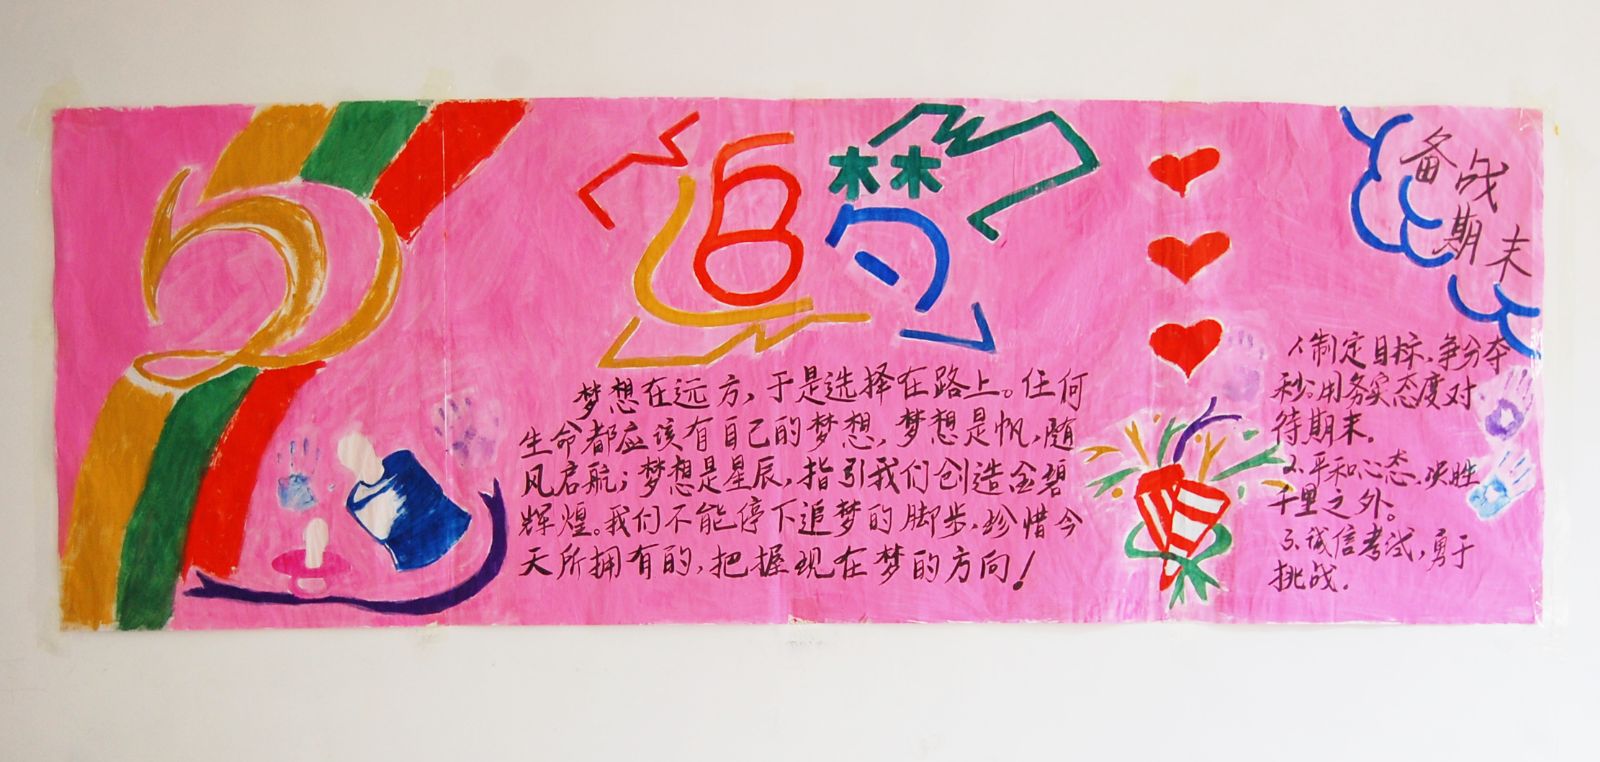 追梦
梦想在远方，于是选择在路上。任何
生命都应该有自己的梦想，梦想是帆，随
风启航；梦想是星辰，指引我们创造金碧
辉煌。我们不能停下追梦的脚步，珍惜今
天所拥有的，把握现在梦的方向！
备战
期末
1、制定目标，争分夺
秒。用务实态度对
待期末。
2、平和心态，决胜
千里之外。
3、诚信考试，勇于
挑战。